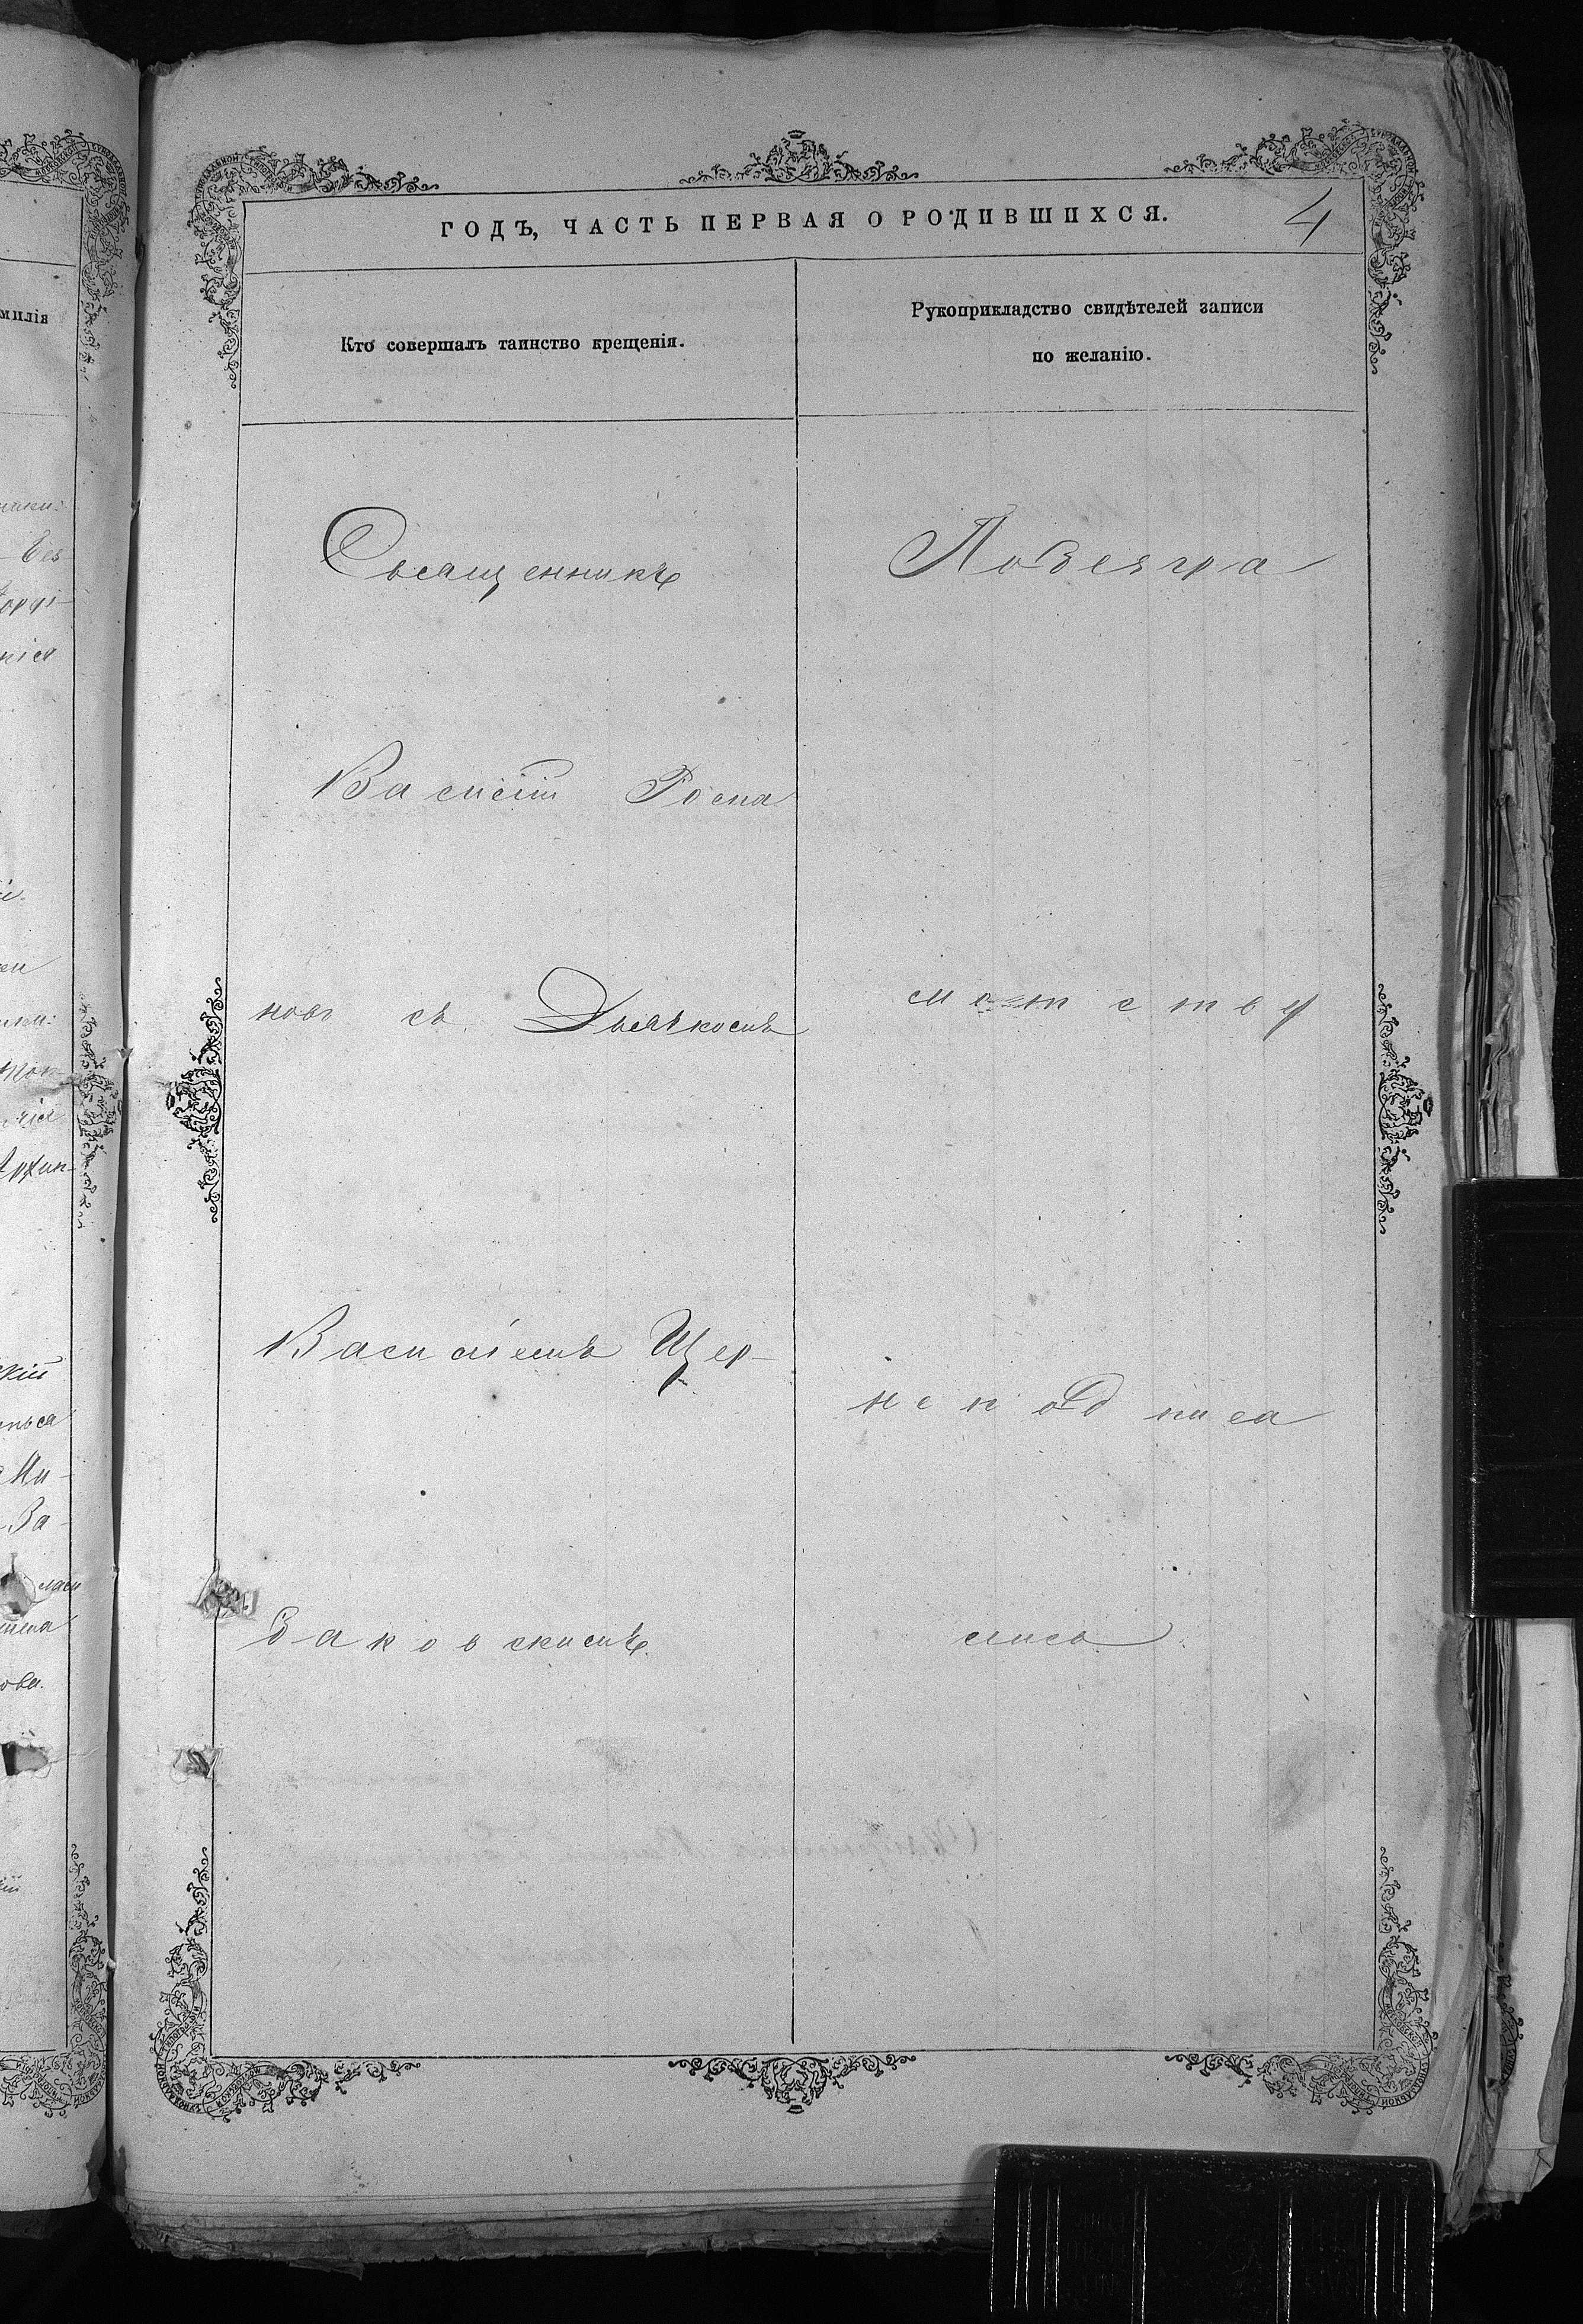 ГОДЪ, ЧАСТЬ ПЕРВАЯ О РОДИВШИХСЯ.
4
Кто совершалъ таинство крещенія.
Рукоприкладство свидѣтелей записи
по желанію.
Священникъ
Василій Рома
новъ съ Дьячкомъ
Василіемъ Щер-
баковскимъ
По безгра
мотству
не подписа
лись
милія